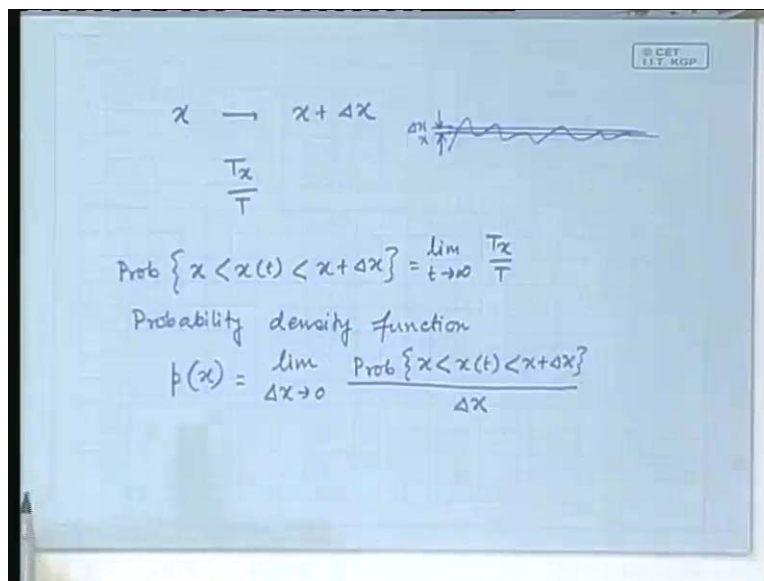 © CET
I.I.T. KGP
x → x + Δx
Δx
x
Tx
T
Prob { x < x(t) < x + Δx } = lim t→∞ Tx/T
Probability density function
p(x) = lim Δx→0 Prob { x < x(t) < x + Δx } / Δx